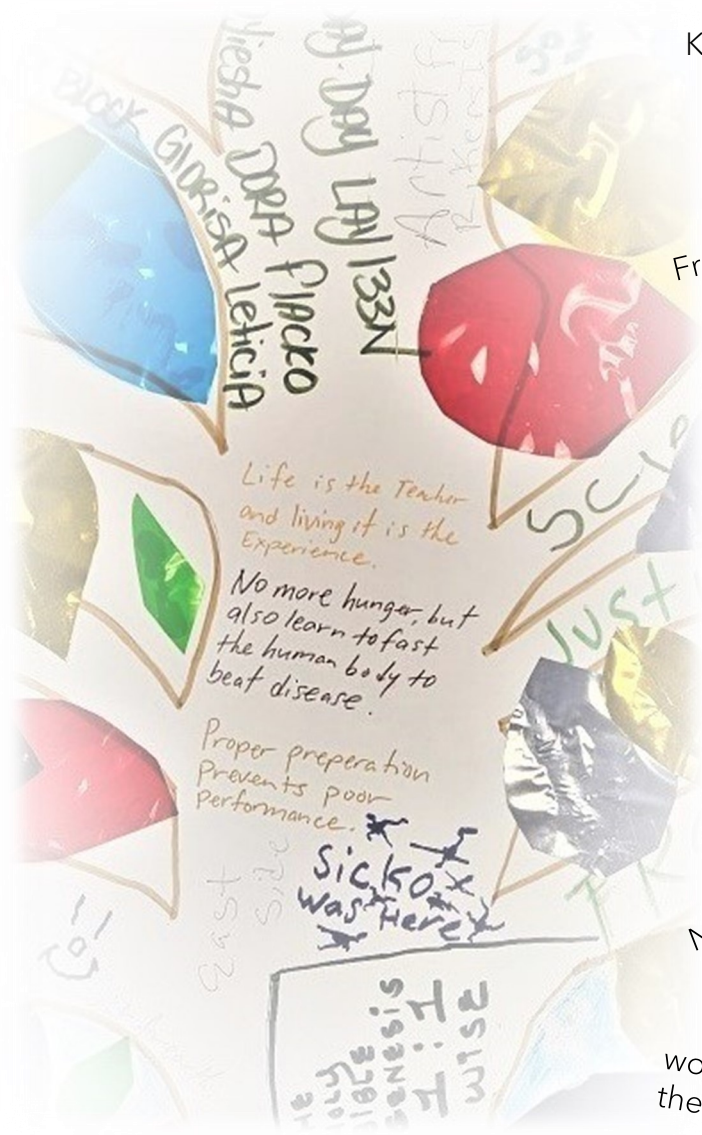 BLOCK GLORISA Leticia
DORA Flacko
DAY LAY133N
Artist
Life is the Teacher
and living it is the
Experience.
No more hunger, but
also learn to fast
the human body to
beat disease.
Proper preperation
Prevents poor
Performance.
Sicko
was Here
East
Side
JUST
GENESIS
1:1
WISE
K
Fr
wo
the